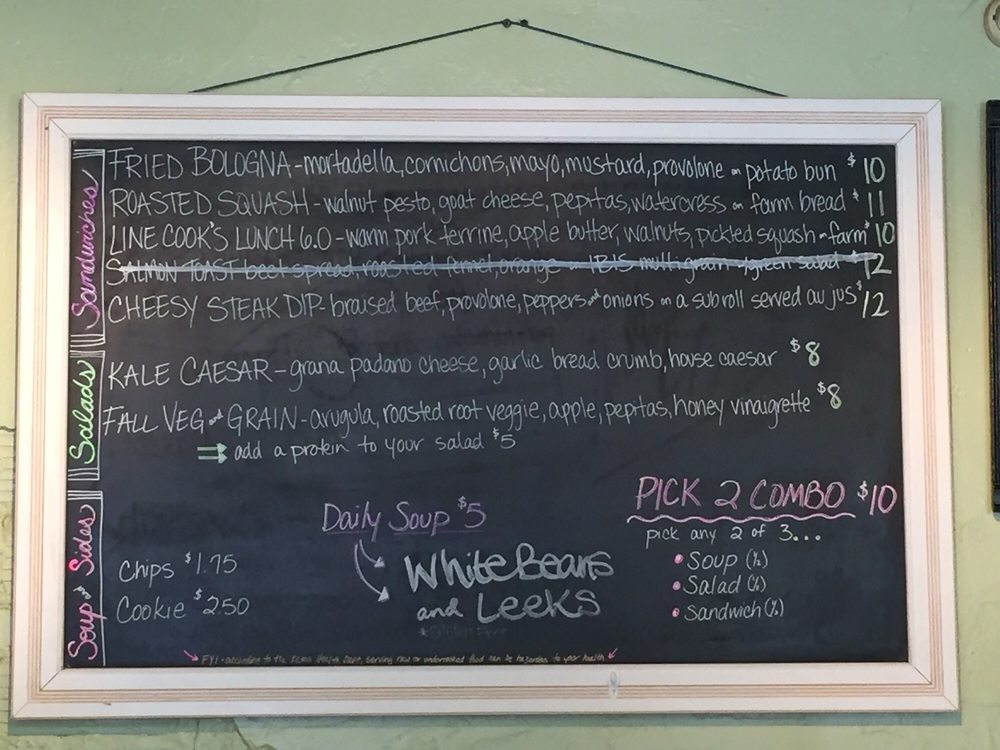 Sandwiches
FRIED BOLOGNA - mortadella, cornichons, mayo, mustard, provolone on potato bun $10
ROASTED SQUASH - walnut pesto, goat cheese, pepitas, watercress on farm bread $11
LINE COOK'S LUNCH 6.0 - warm pork terrine, apple butter, walnuts, pickled squash on farm $10
SALMON TOAST beet spread roasted fennel, orange multigrain green salad $12
CHEESY STEAK DIP - braised beef, provolone, peppers and onions on a sub roll served au jus $12
Salads
KALE CAESAR - grana padano cheese, garlic bread crumb, house caesar $8
FALL VEG and GRAIN - arugula, roasted root veggie, apple, pepitas, honey vinaigrette $8
add a protein to your salad $5
Soup and Sides
Chips $1.75
Cookie $2.50
Daily Soup $5
White Beans
and Leeks
PICK 2 COMBO $10
pick any 2 of 3...
• Soup (½)
• Salad (½)
• Sandwich (½)
FYI - according to the Health Dept, serving raw or undercooked food can be hazardous to your health